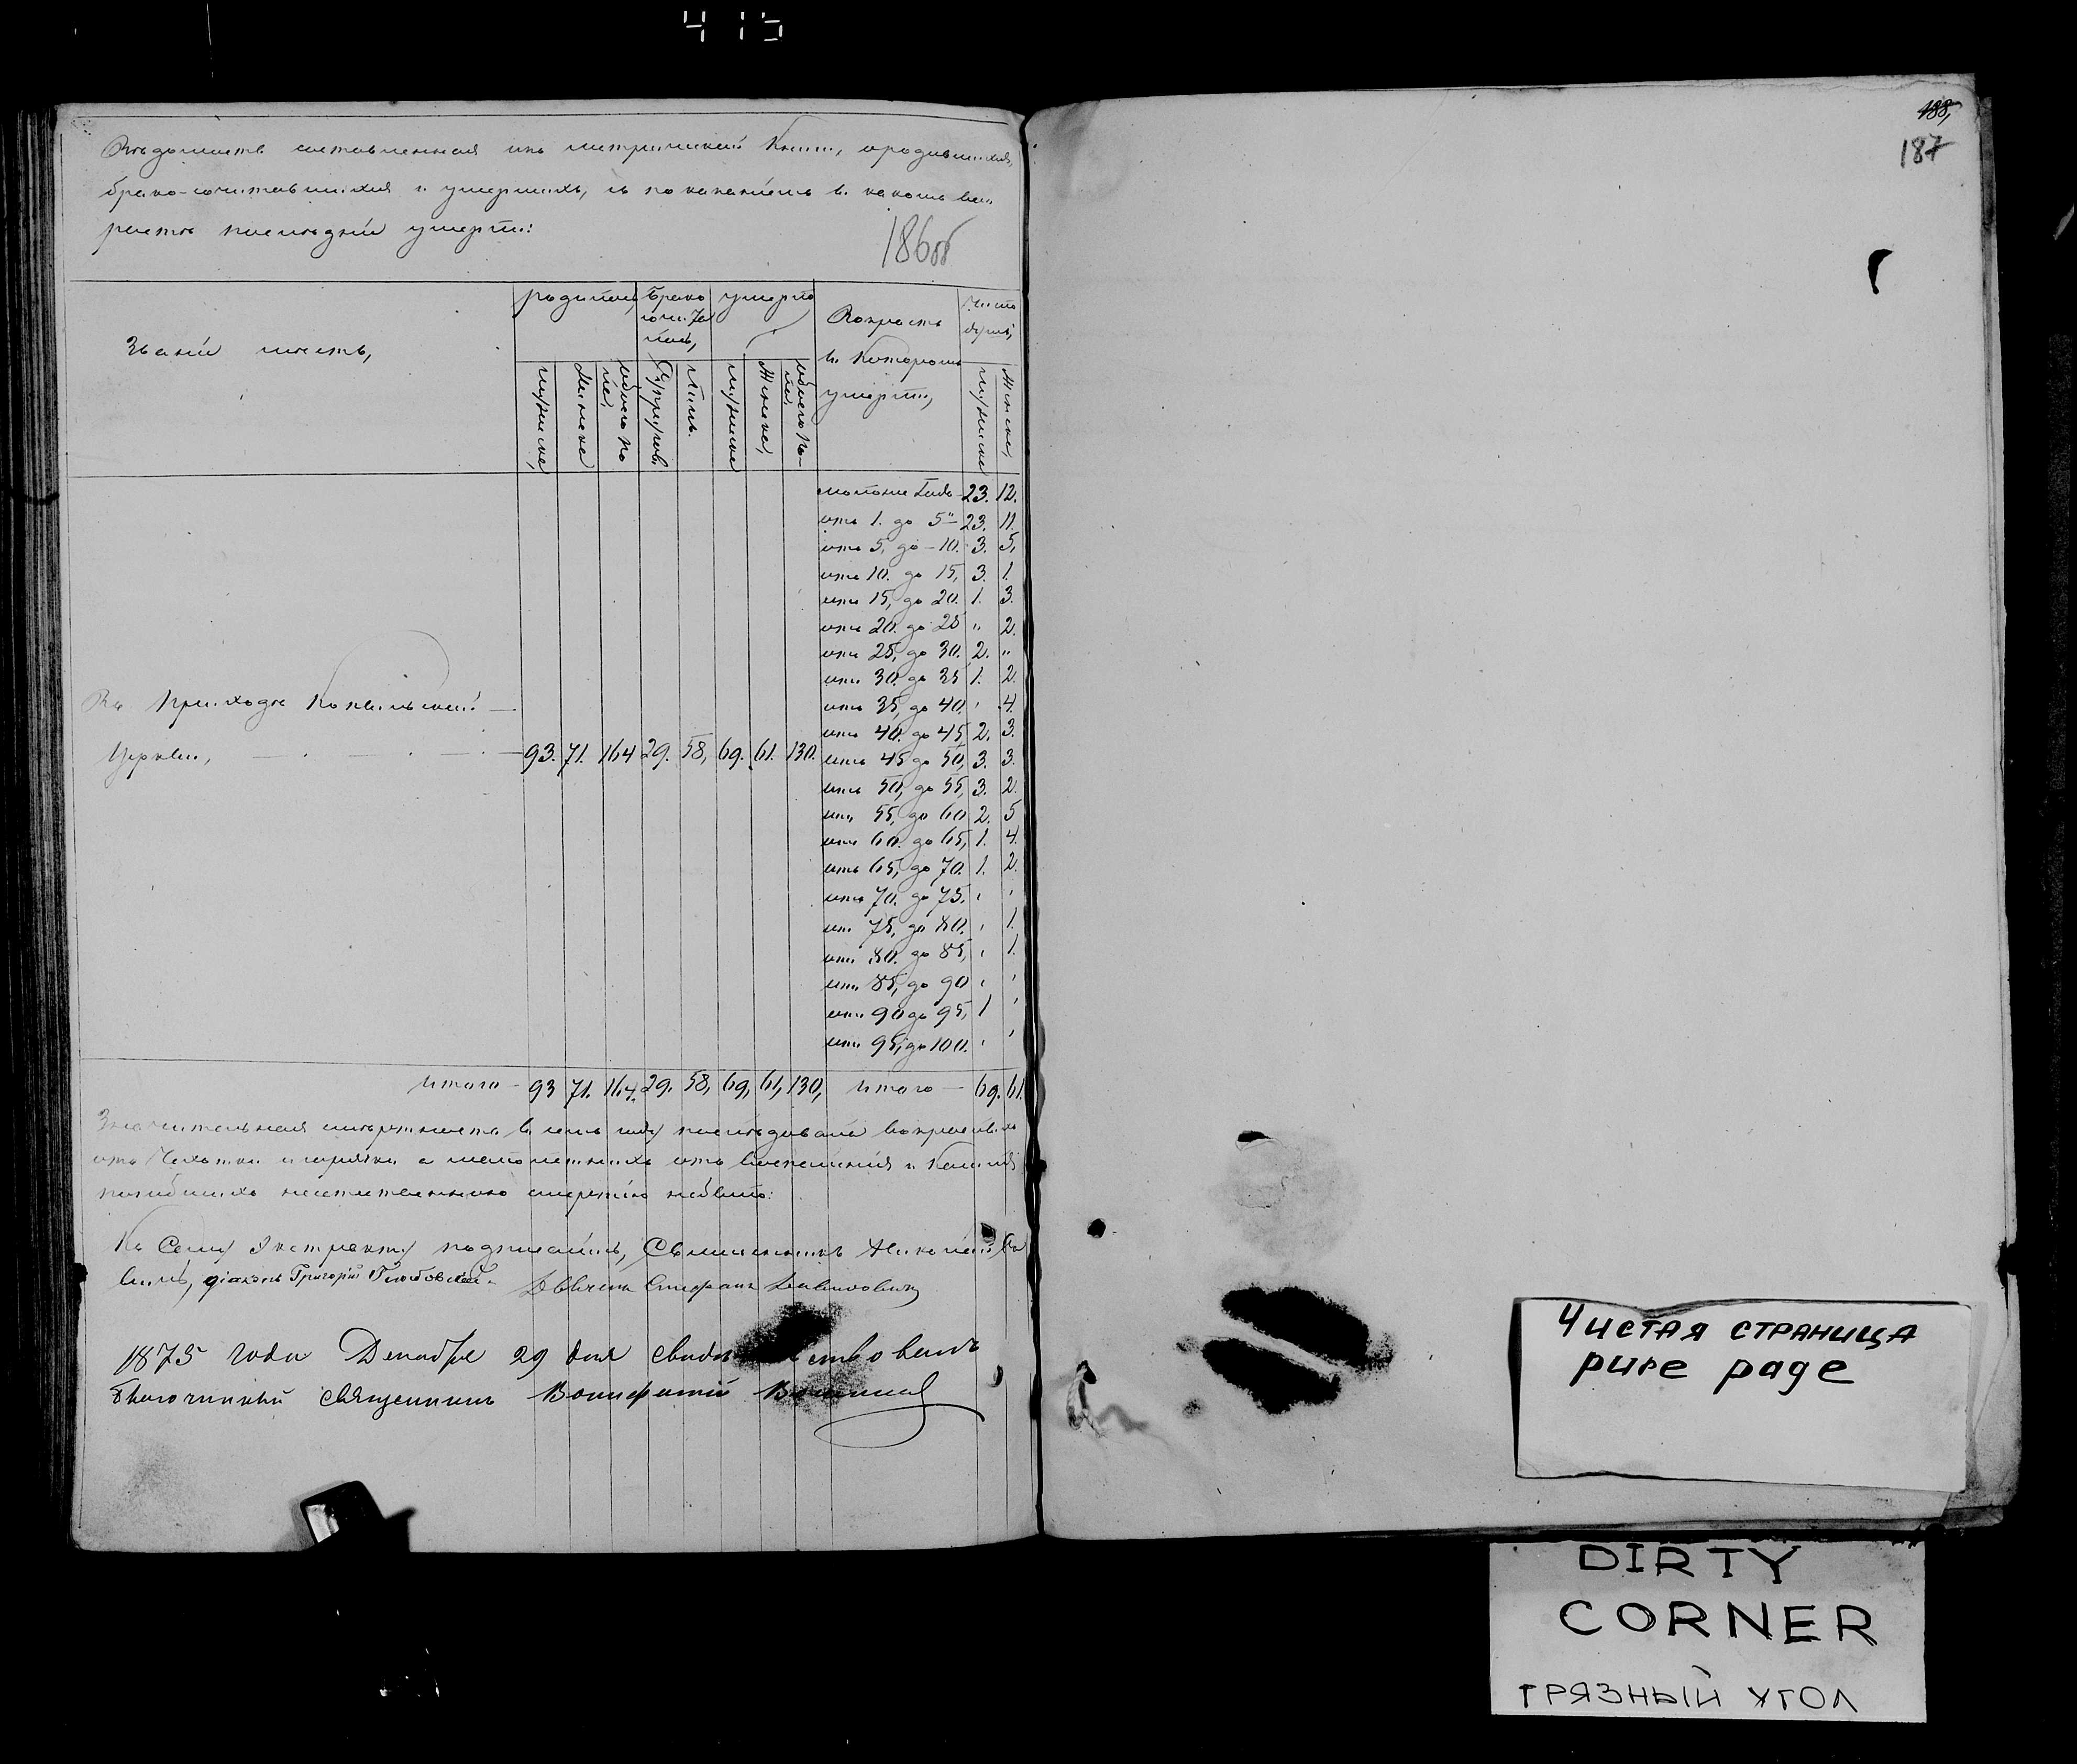 415
Вѣдомость составленная изъ метрической Книги, о родившихся,
брако-сочитавшихся и умершихъ, съ показаніемъ въ какомъ воз
растѣ послѣдніи умерли:
186об
Званіи мѣстъ,
родилось
Брако сочитались,
умерло
Возрастъ въ Которомъ умерли,
Число душъ,
мужеска,
Женска
обоего пола
Супруговъ
лицъ.
мужеска
Женска,
обоего пола
мужеска
Женска,
23. 12.
отъ 1. до 5" 23. 11.
отъ 5, до - 10. 3. 5,
отъ 10. до 15, 3. 1.
отъ 15, до 20. 1. 3.
отъ 20. до 25 " 2.
отъ 25, до 30. 2. "
отъ 30. до 35 1. 2.
отъ 35, до 40. ' 4.
отъ 40. до 45, 2. 3.
Въ Приходѣ
Церкви, 93. 71. 164 29. 58, 69. 61. 130. отъ 45 до 50, 3. 3.
отъ 50, до 55, 3. 2.
отъ 55, до 60 2. 5
отъ 60. до 65, 1. 4.
отъ 65, до 70. 1. 2.
отъ 70. до 75. ' '
отъ 75, до 80. ' 1.
отъ 80. до 85, ' 1.
отъ 85, до 90 ' '
отъ 90 до 95, 1 '
отъ 95, до 100. ' '
Итого - 93 71. 164. 29. 58, 69, 61, 130, Итого - 69. 61.
Значительная смертность въ семъ году послѣдовала
отъ Чахотки и горячки а малолетнихъ отъ воспаленія и Кашля
погибшихъ неестественною смертію небыло:
Къ Сему Экстракту подписались, Священникъ Николай
діаконъ Григорій
Дьячекъ Стефанъ
1875 года Декабря 29 дня свидѣтельствовалъ
Благочинный священникъ Вонифатій
188,
187
Чистая страница
pure page
DIRTY
CORNER
ГРЯЗНЫЙ УГОЛ